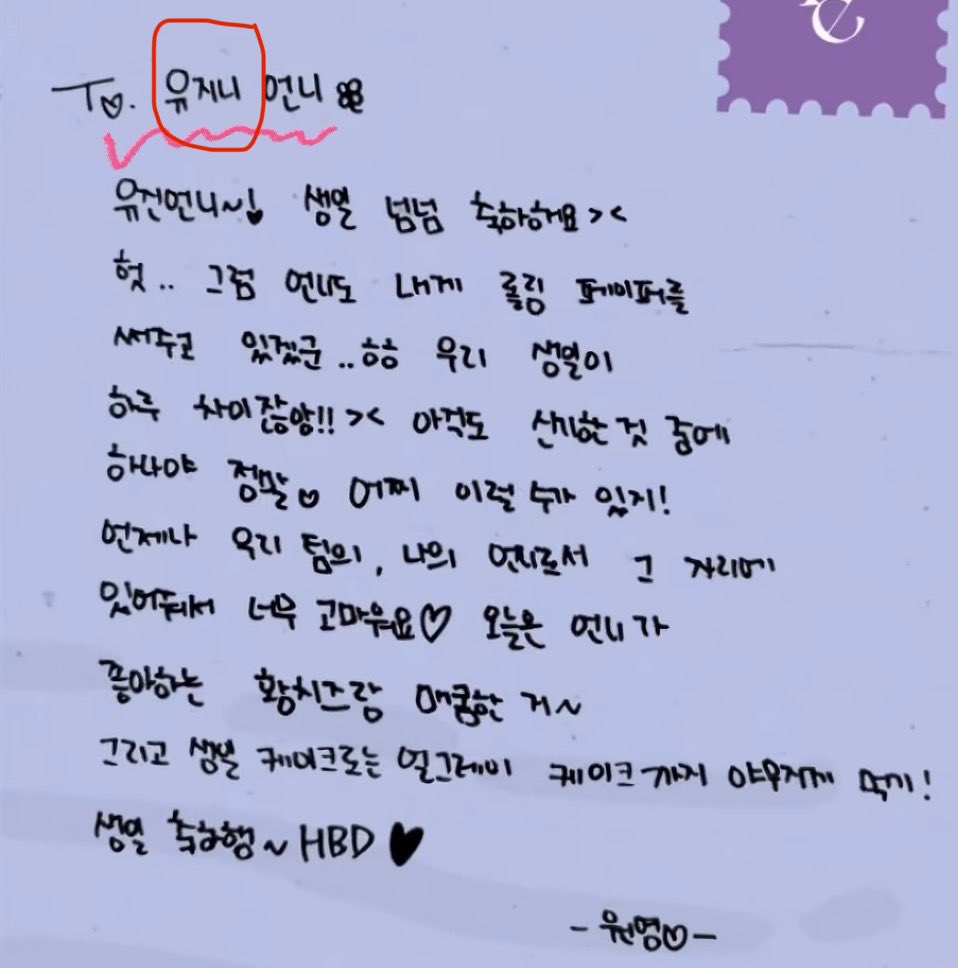 To. 유지니 언니
유진언니~! 생일 넘넘 축하해요><
헛.. 그럼 언니도 내게 롤링 페이퍼를
써주고 있겠군..ㅎㅎ 우리 생일이
하루 차이잖앙!! >< 아걱도 신기한 것 중에
하나야 정말 어찌 이럴 수가 있지!
언제나 우리 팀의, 나의 언니로서 그 자리에
있어줘서 너무 고마워요♡ 오늘은 언니가
좋아하는 황치즈랑 매콤한 거~
그리고 생일 케이크로는 얼그레이 케이크까지 야무지게 먹기!
생일 축하행~ HBD ♥
- 원영♡ -